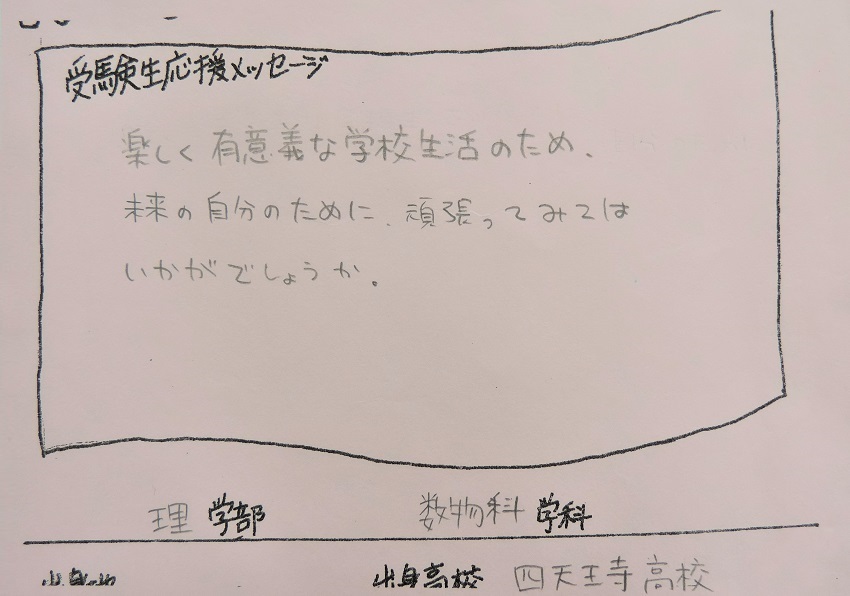 受験生応援メッセージ
楽しく有意義な学校生活のため、
未来の自分のために、頑張ってみては
いかがでしょうか。
理 学部 数物科 学科
出身高校 四天王寺高校